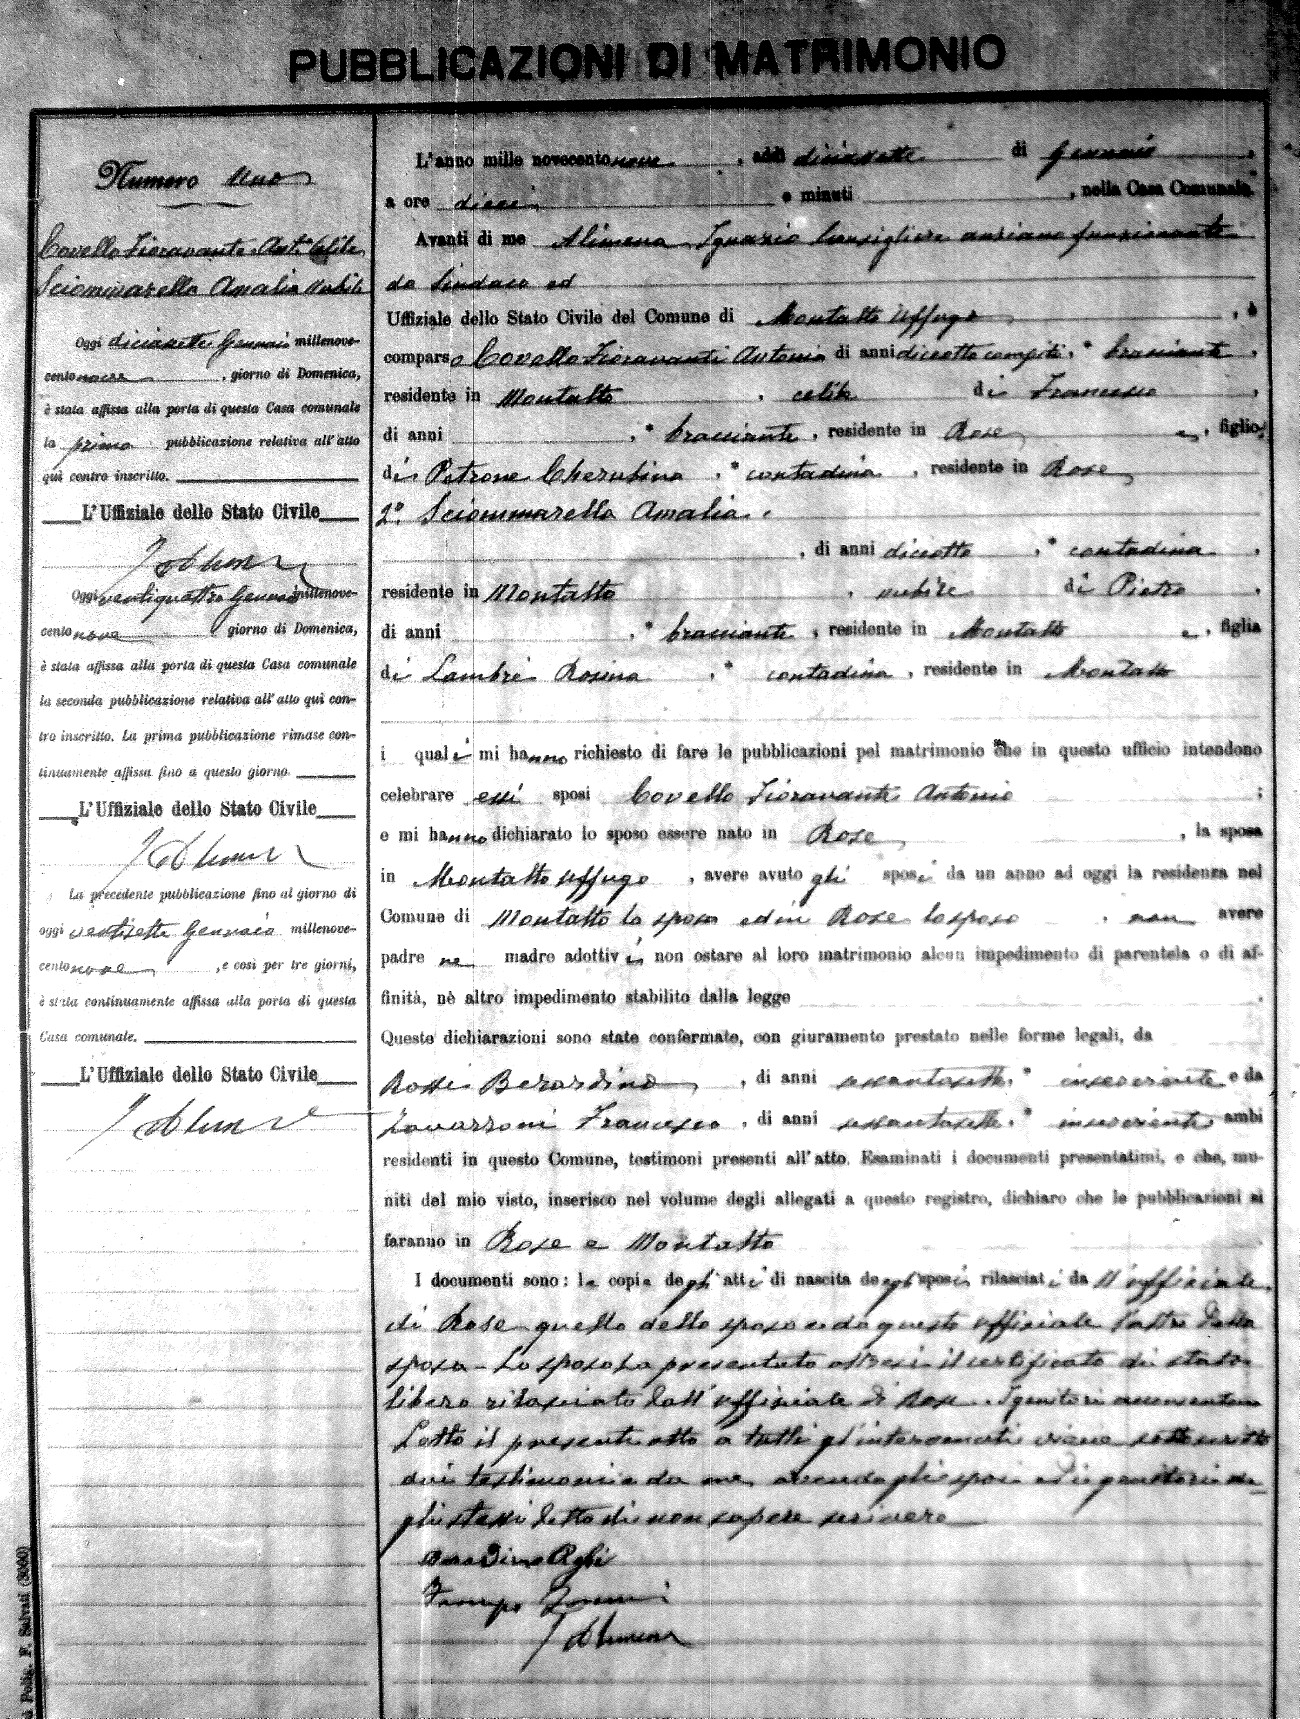 PUBBLICAZIONI DI MATRIMONIO
Numero Uno
Covello Fioravante Ant.o Celibe
Sciommarella Amalia nubile
Oggi diciasette Gennaio millenove-
cento nove, giorno di Domenica,
è stata affissa alla porta di questa Casa comunale
la prima pubblicazione relativa all'atto
quì contro inscritto.
L'Uffiziale dello Stato Civile
Oggi ventiquattro Gennaio millenove-
cento nove giorno di Domenica,
è stata affissa alla porta di questa Casa comunale
la seconda pubblicazione relativa all'atto quì con-
tro inscritto. La prima pubblicazione rimase con-
tinuamente affissa fino a questo giorno.
L'Uffiziale dello Stato Civile
La precedente pubblicazione fino al giorno di
oggi ventisette Gennaio millenove-
cento nove, e così per tre giorni,
è stata continuamente affissa alla porta di questa
Casa comunale.
L'Uffiziale dello Stato Civile
L'anno mille novecento nove, addì diciasette di Gennaio,
a ore dieci e minuti , nella Casa Comunale.
Avanti di me Alimena Ignazio Consigliere anziano funzionante
da Sindaco ed
Uffiziale dello Stato Civile del Comune di Montalto Uffugo, è
comparso Covello Fioravanti Antonio di anni diciotto compiti, bracciante,
residente in Montalto, celibe di Francesco,
di anni , bracciante, residente in Rose e, figlio
di Petrone Cherubina, contadina, residente in Rose
2°. Sciommarella Amalia
, di anni diciotto, contadina,
residente in Montalto, nubile di Pietro,
di anni , bracciante, residente in Montalto e, figlia
di Lambri Rosina, contadina, residente in Montalto
i quali mi hanno richiesto di fare le pubblicazioni pel matrimonio che in questo ufficio intendono
celebrare essi sposi Covello Fioravanti Antonio ;
e mi hanno dichiarato lo sposo essere nato in Rose, la sposa
in Montalto Uffugo, avere avuto gli sposi da un anno ad oggi la residenza nel
Comune di Montalto la sposa ed in Rose lo sposo, non avere
padre ne madre adottivi non ostare al loro matrimonio alcun impedimento di parentela o di af-
finità, nè altro impedimento stabilito dalla legge.
Queste dichiarazioni sono state confermate, con giuramento prestato nelle forme legali, da
Berardino, di anni sessantasette, inserviente e da
Zavarroni Francesco, di anni sessantasette, inserviente ambi
residenti in questo Comune, testimoni presenti all'atto. Esaminati i documenti presentatimi, e che, mu-
niti del mio visto, inserisco nel volume degli allegati a questo registro, dichiaro che le pubblicazioni si
faranno in Rose e Montalto
I documenti sono: le copie degli atti di nascita degli sposi rilasciati da ll'uffiziale
di Rose quello dello sposo e da questo uffiziale l'altro della
sposa - Lo sposo ha presentato altresì il certificato di stato
libero rilasciato dall'uffiziale di Rose. I genitori acconsentono
Letto il presente atto a tutti gl'intervenuti viene sottoscritto
dai testimoni e da me, avendo gli sposi ed i genitori de-
gli stessi detto di non sapere scrivere
Polig. F. Salvati (3000)